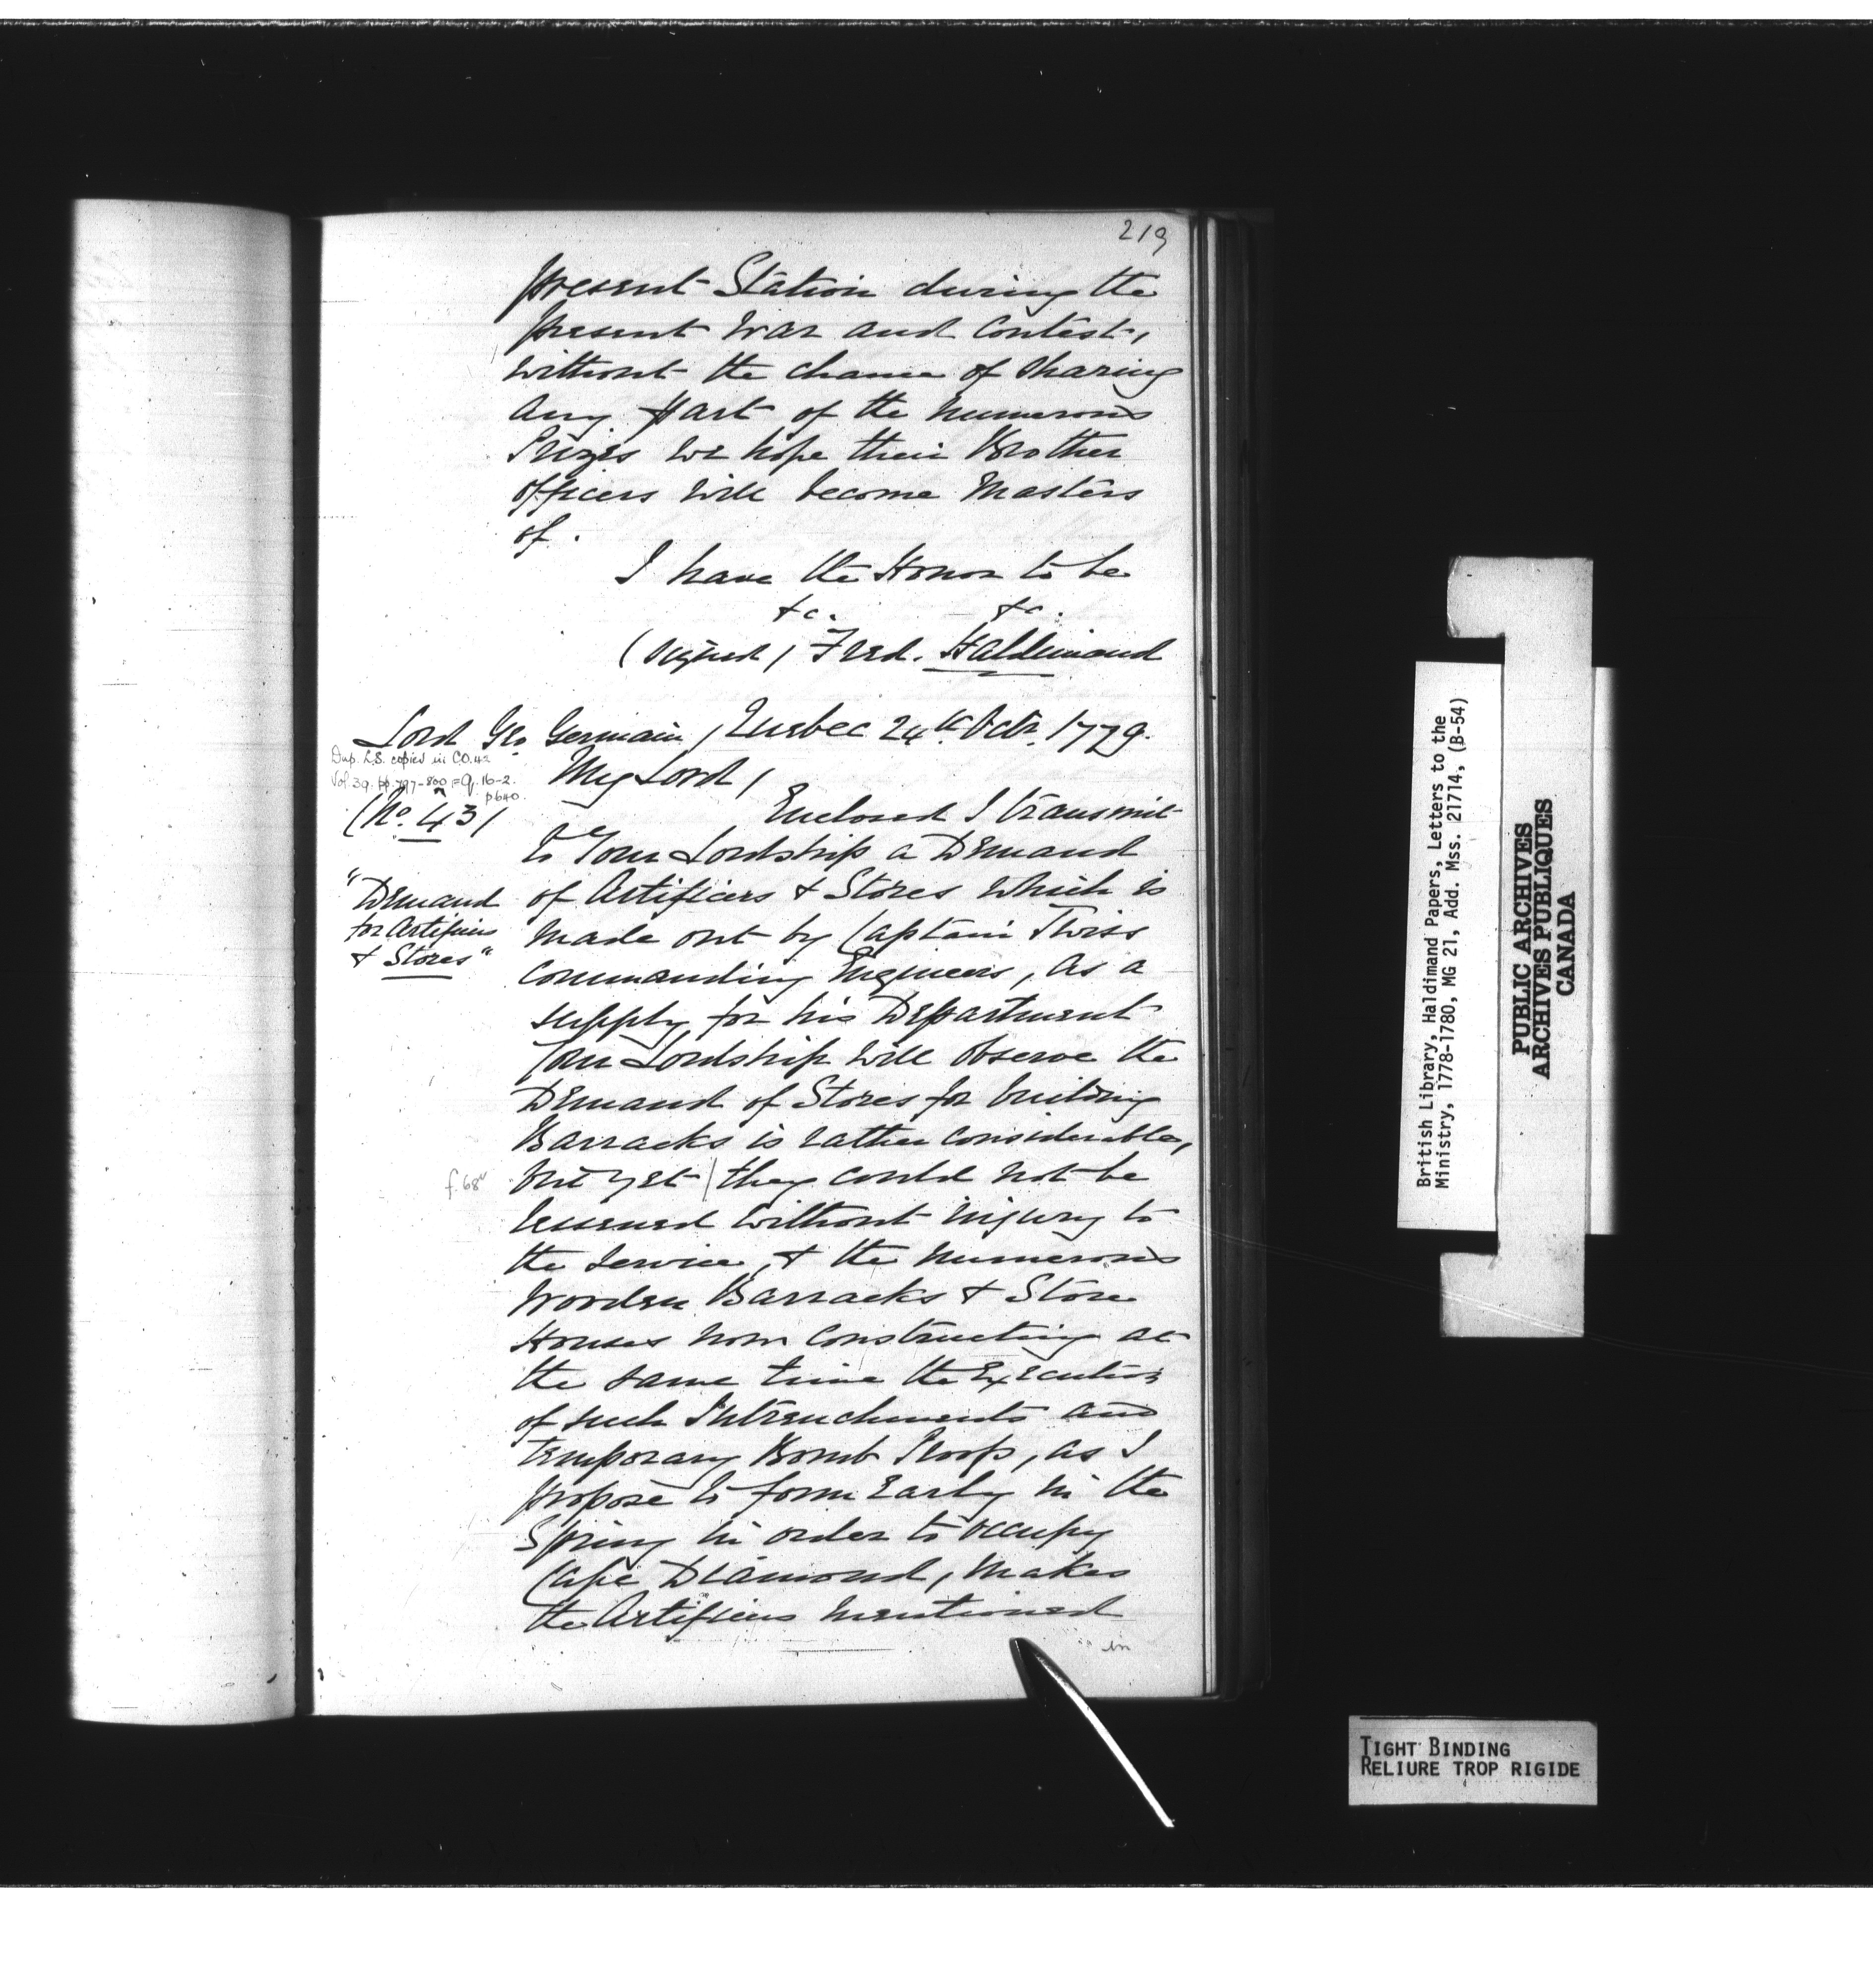 219
present Station during the
present War and Contest,
without the chance of sharing
any Part of the numerous
Prizes we hope their Brother
officers will become Masters
of.
I have the Honor to be
&c. &c.
(signed) Fred. Haldimand
Lord Geo Germain / Quebec 24th Octr. 1779.
Dup. L.S. copied in C.O. 42
Vol. 39. pp. 797-800 = Q. 16-2.
p640.
My Lord,
(No. 43)
Enclosed I transmit
to Your Lordship a Demand
"Demand
for Artificers
& Stores"
of Artificers & Stores which is
made out by Captain Twiss
commanding Engineers, as a
supply for his Department
Your Lordship will observe the
Demand of Stores for building
Barracks is rather considerable,
f. 68v
but yet / they could not be
lessened without injury to
the Service, & the numerous
Wooden Barracks & Store
Houses now constructing at
the same time the Execution
of such Intrenchments and
temporary Bomb Proofs, as I
propose to form early in the
Spring in order to occupy
Cape Diamond, makes
the Artificers mentioned
in
British Library, Haldimand Papers, Letters to the
Ministry, 1778-1780, MG 21, Add. Mss. 21714, (B-54)
PUBLIC ARCHIVES
ARCHIVES PUBLIQUES
CANADA
TIGHT BINDING
RELIURE TROP RIGIDE